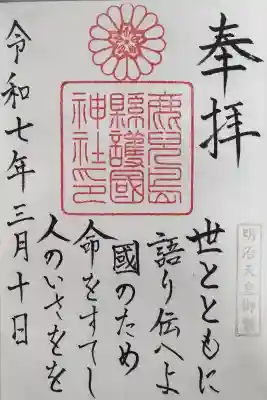 奉拝
明治天皇御製
世とともに
語り伝へよ
國のため
命をすてし
人のいさをを
鹿児島
縣護國
神社印
令和七年三月十日